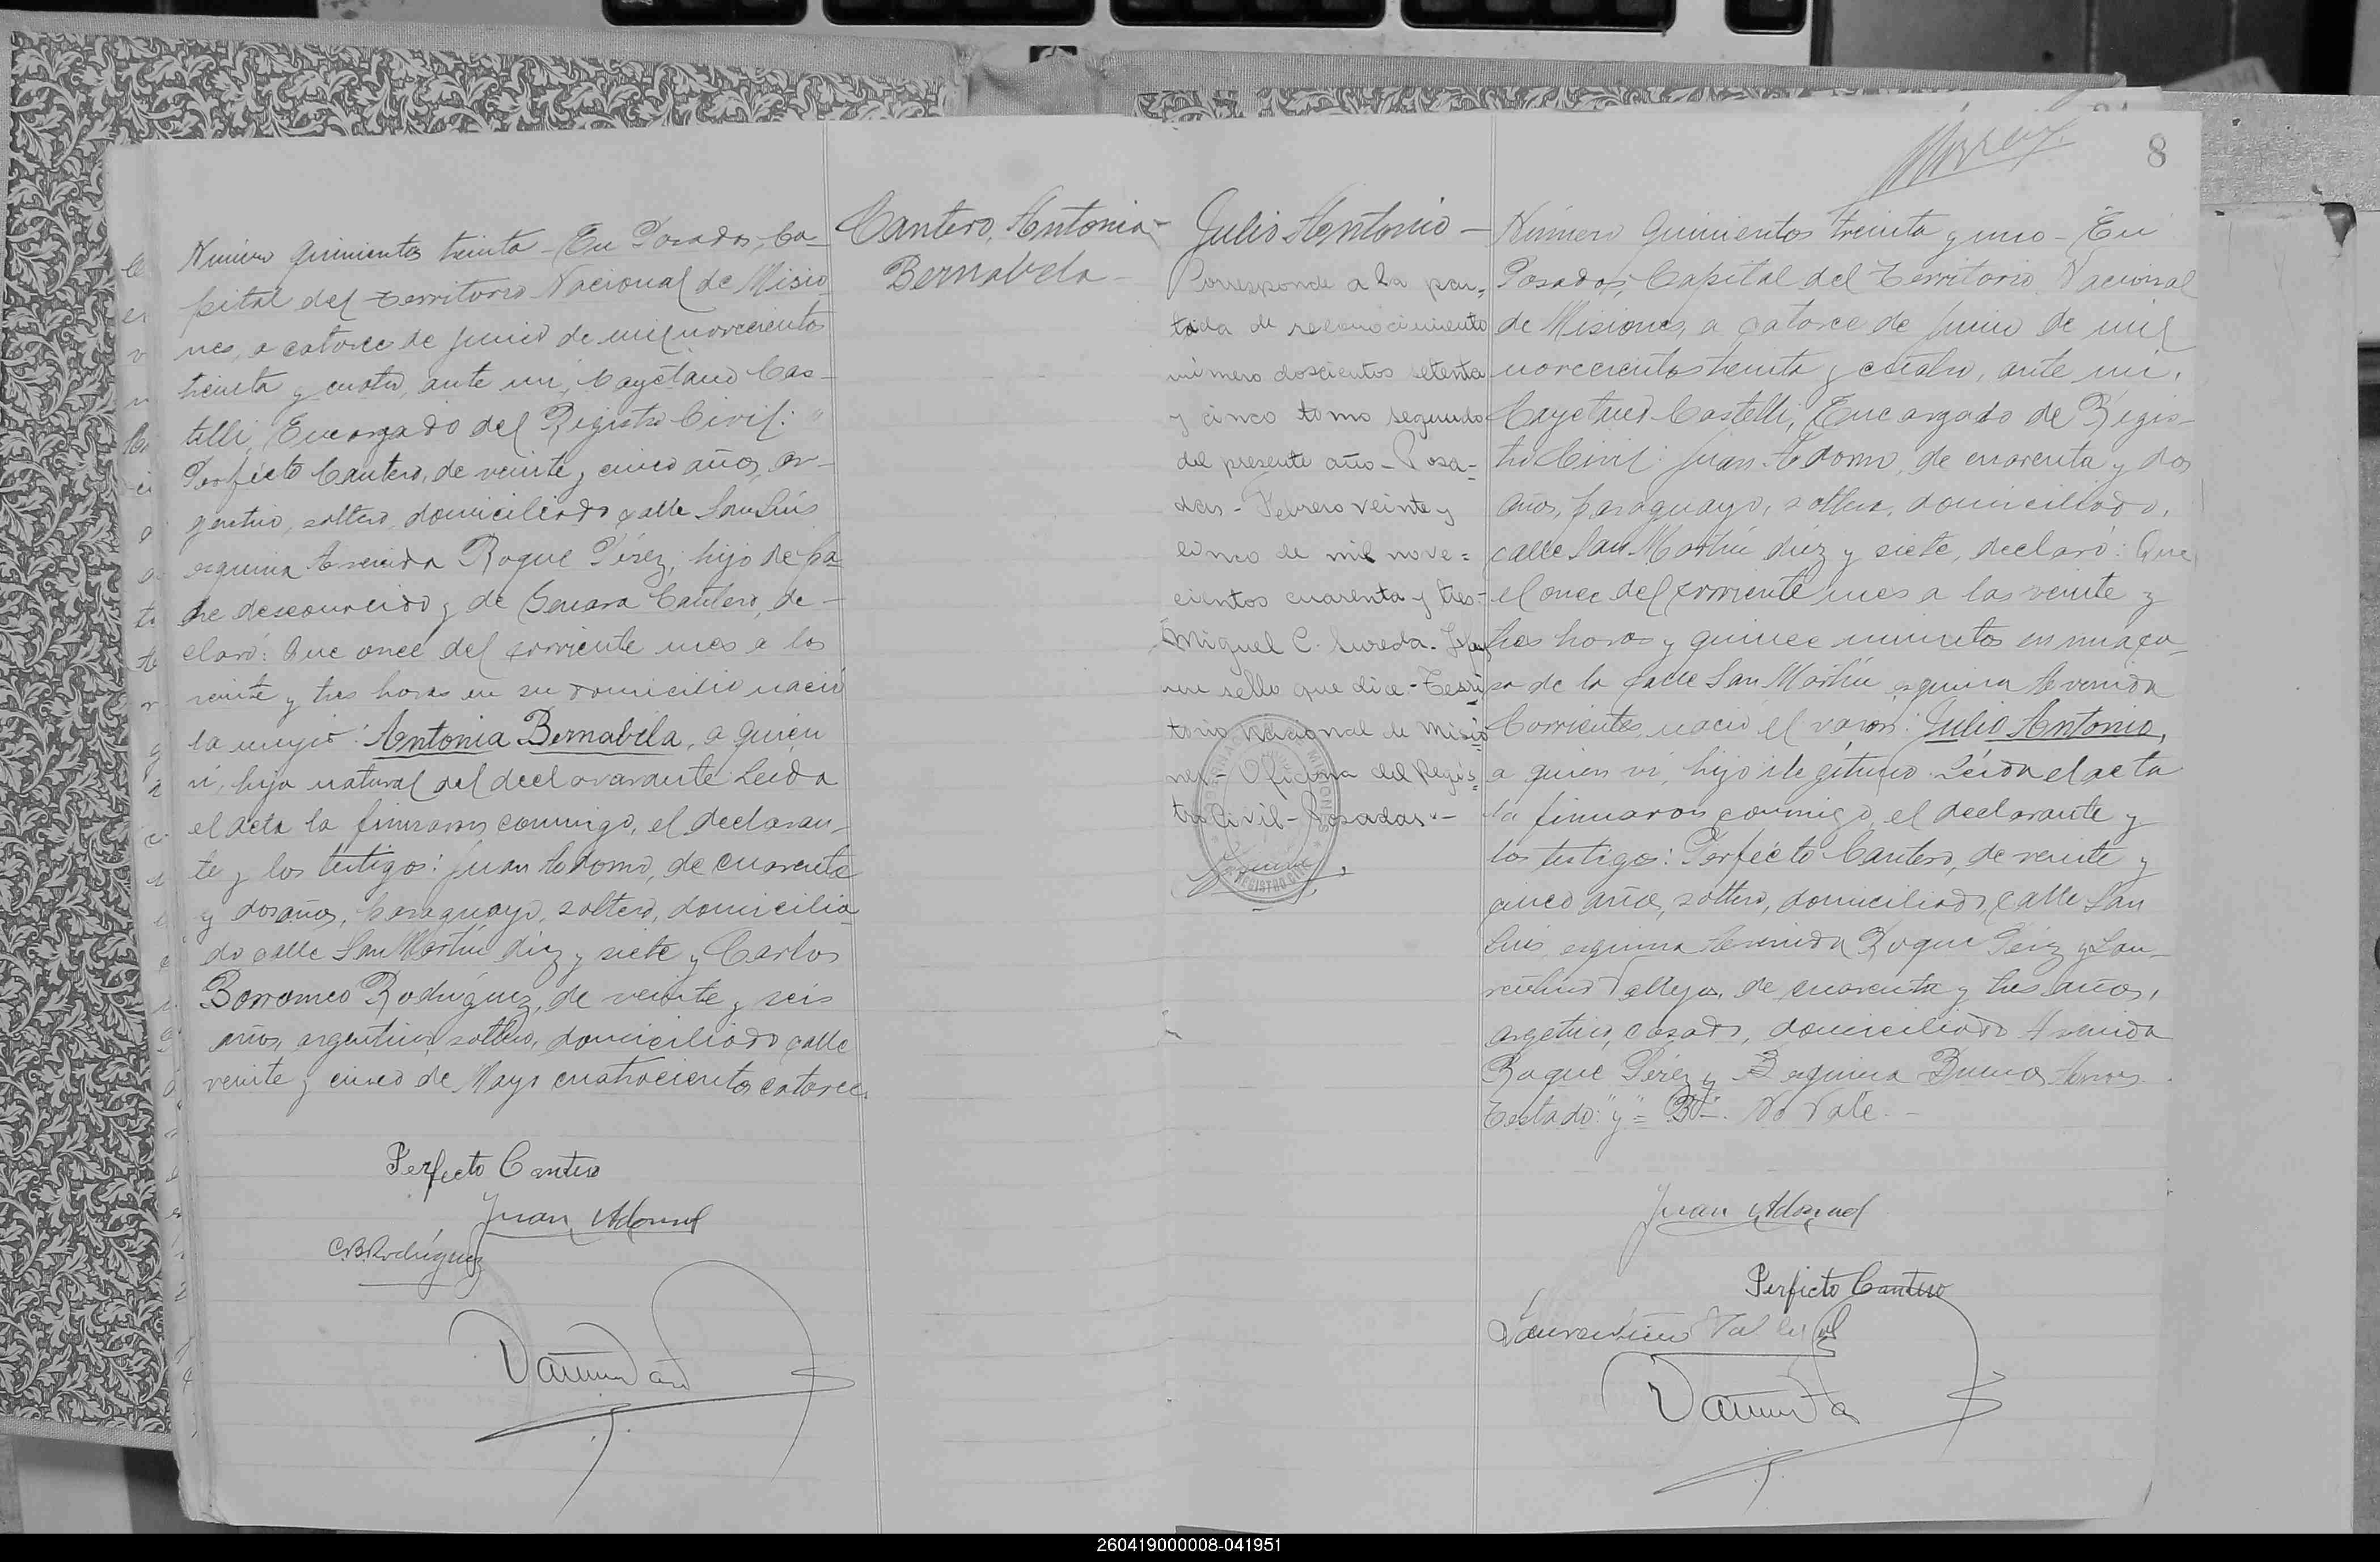 Cantero, Antonia-
Bernabela-
Número quinientos treinta - En Posadas, Ca-
pital del Territorio Nacional de Misio-
nes, a catorce de junio de mil novecientos
treinta y cuatro, ante mi, Cayetano Cas-
telli, Encargado del Registro Civil:
Perfecto Cantero, de veinte y cinco años, ar-
gentino, soltero, domiciliado calle San Luis
esquina Avenida Roque Pérez, hijo de pa-
dre desconocido y de Cantero, de-
claró: Que once del corriente mes a las
veinte y tres horas en su domicilio nació
la mujer: Antonia Bernabela, a quien
vi, hija natural del declavarante Leida
el acta la firmaron conmigo, el declaran-
te y los testigos: Juan Adorno, de cuarenta
y dos años, paraguayo, soltero, domicilia-
do calle San Martín diez y siete y Carlos
Borromeo Rodríguez, de veinte y seis
años, argentino, soltero, domiciliado calle
veinte y cinco de Mayo cuatrocientos catorce.
Perfecto Cantero
Juan Adorno
C.B. Rodríguez
8
Julio Antonio -
Corresponde a la par-
tida de reconocimiento
número doscientos setenta
y cinco tomo segundo
del presente año - Posa-
das - Febrero veinte y
cinco de mil nove=
cientos cuarenta y tres -
Miguel C. Sureda. Hay
un sello que dice - Terri
torio Nacional de Misio
nes - Oficina del Regis-
tro Civil - Posadas -
REGISTRO CIVIL
Número quinientos treinta y uno - En
Posadas, Capital del Territorio Nacional
de Misiones, a catorce de junio de mil
novecientos treinta y cuatro, ante mi,
Cayetano Castelli, Encargado de Regis-
tro Civil: Juan Adorno, de cuarenta y dos
años, paraguayo, soltero, domiciliado,
calle San Martín diez y siete, declaró: Que
el once del corriente mes a las veinte y
tres horas y quince minutos en una ca-
sa de la calle San Martín esquina Avenida
Corrientes, nació el varón: Julio Antonio,
a quien vi, hijo ilegítimo. Leida el acta
la firmaron conmigo, el declarante y
los testigos: Perfecto Cantero, de veinte y
cinco años, soltero, domiciliado, calle San
Luis, esquina Avenida Roque Pérez y Lau-
Vallejos, de cuarenta y tres años,
argetino, casado, domiciliado Avenida
Roque Pérez y esquina Buenos Aires.
Testado: "y" = No vale. -
Juan Adorno
Perfecto Cantero